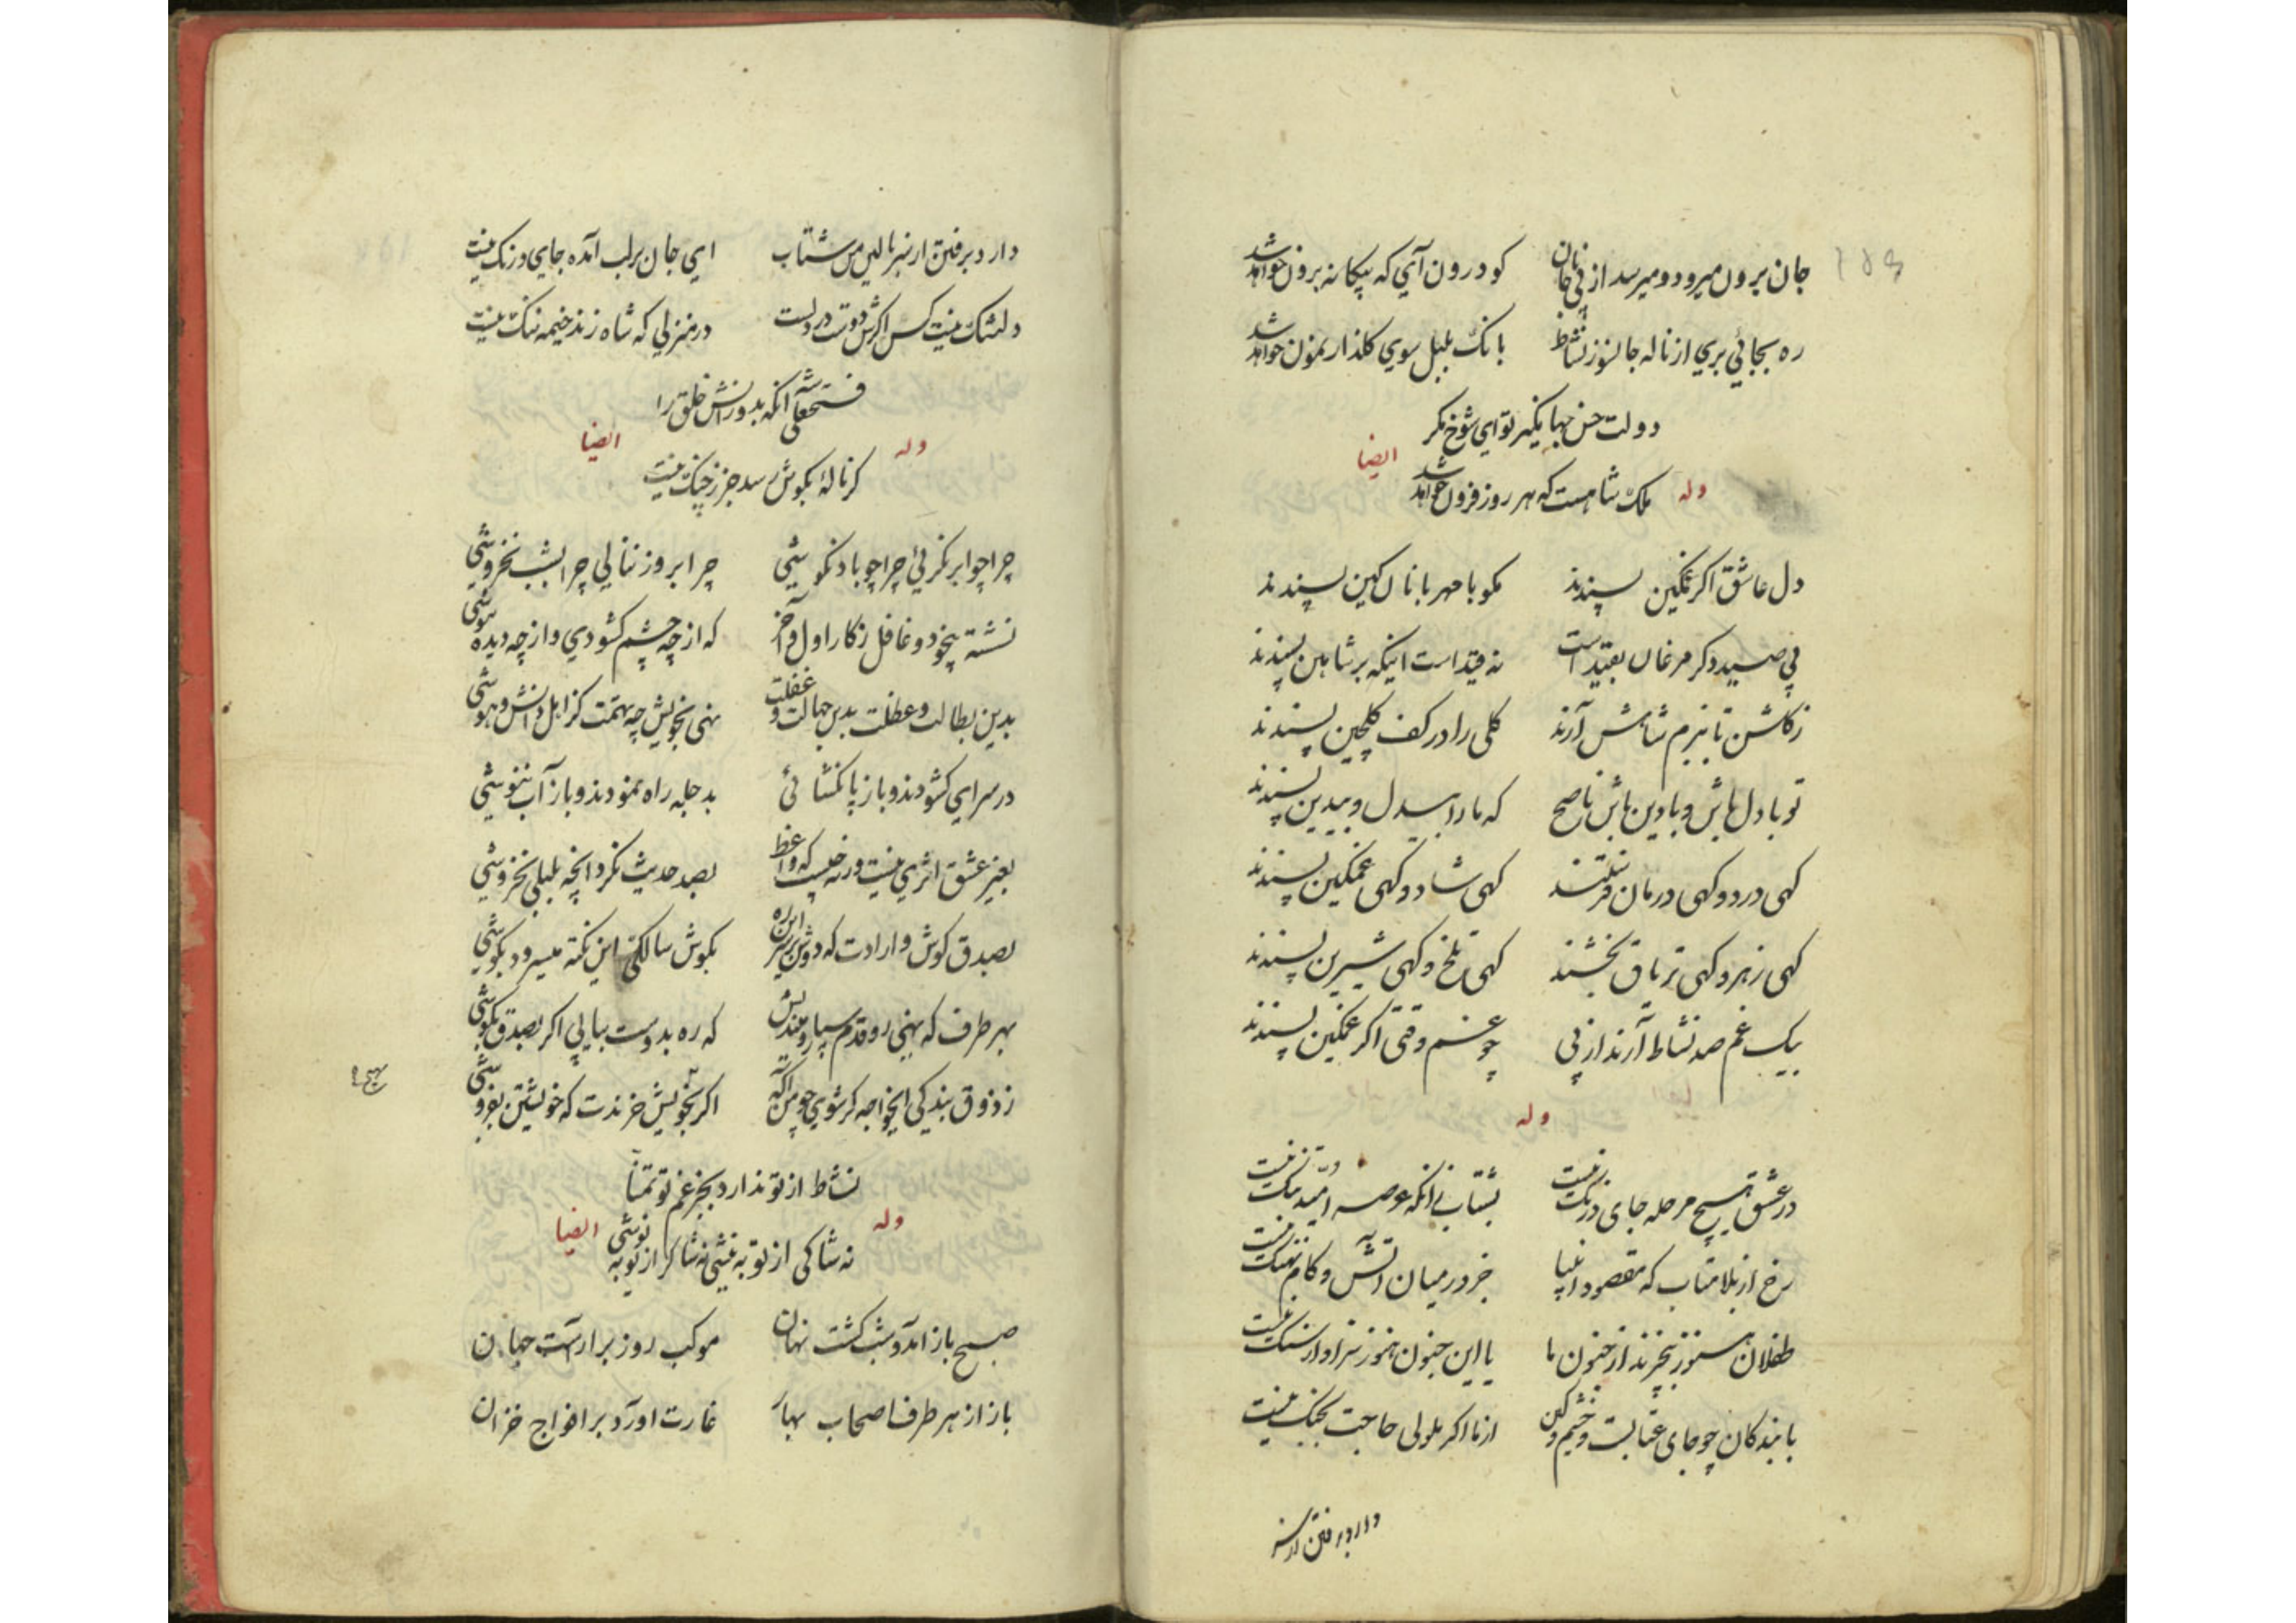 جان برون میرود و میرسد از پی جانان کو درون آی که بیکانه برون خواهد شد
ره بجائی بری از ناله جانسوز نشاط بانک بلبل سوی کلذار نمون خواهد شد
دولت حسن جهانکیر تو ای شوخ مکر
ایضا
ملک شاهست که هر روز فزون خواهد شد
وله
دل عاشق اکر غمکین پسندند مکو با مهربانان کین پسندند
پی صید دکر مرغان بقید است نه قید است اینکه بر شاهین پسندند
ز کلشن تا ببزم شاهش آرند کلی را در کف کلچین پسندند
تو با دل باش و با دین باش ناصح که ما را بیدل و بیدین پسندند
کهی درد و کهی درمان فرستند کهی شاد و کهی غمکین پسندند
کهی زهر و کهی تریاق بخشند کهی تلخ و کهی شیرین پسندند
بیک غم صد نشاط آرند از پی چو غم وقتی اکر غمکین پسندند
وله
در عشق هیچ مرحله جای درنک نیست بشتاب زانکه عرصه امید تنک نیست
رخ از بلا متاب که مقصود انبیا جز در میان آتش و کام نهنک نیست
طفلان هنوز بیخبرند از جنون ما یا این جنون هنوز سزاوار سنک نیست
با بندکان چو جای عتابست و خشم و کین از ما اکر ملولی حاجت بجنک نیست
دارد برفتن از سر
دارد برفتن از سر بالین من شتاب ای جان بر لب آمده جای درنک نیست
دلتنک نیست کس اکرش دوست در دلست در منزلی که شاه زند خیمه تنک نیست
فتحعلی شه آنکه بدورانش خلق را
وله ایضا
کر نالهٔ بکوش رسد جز ز چنک نیست
چرا چو ابر نکریی چرا چو باد نکوشی چرا بروز ننالی چرا بشب نخروشی
نشسته بیخود و غافل ز کار اول و آخر که از چه چشم کشودی و از چه دیده بپوشی
بدین بطالت و عطلت بدین جهالت و غفلت نهی بخویش چه تهمت کز اهل دانش و هوشی
در سرای کشودند و باز پا نکشائی بدجله راه نمودند و باز آب ننوشی
بغیر عشق اثری نیست ورنه چیست که واعظ بصد حدیث نکرد آنچه بلبلی بخروشی
بصدق کوش و ارادت که دوش بر سر این ره بکوش سالکی این نکته میسرود بکوشی
بهر طرف که نهی رو قدم سپار و میندیش که ره بدوست بیابی اکر بصدق بکوشی
ز ذوق بندکی ایخواجه کر شوی چو من آکه اکر بخویش خرندت که خویشتن بفروشی
نشاط از تو ندارد بجز غم تو تمنا
وله ایضا
نه شاکی از تو به نیشی نه شاکر از تو به نوشی
صبح باز آمد و شب کشت نهان موکب روز بر آراست جهان
باز از هر طرف اصحاب بهار غارت آورد بر افواج خزان